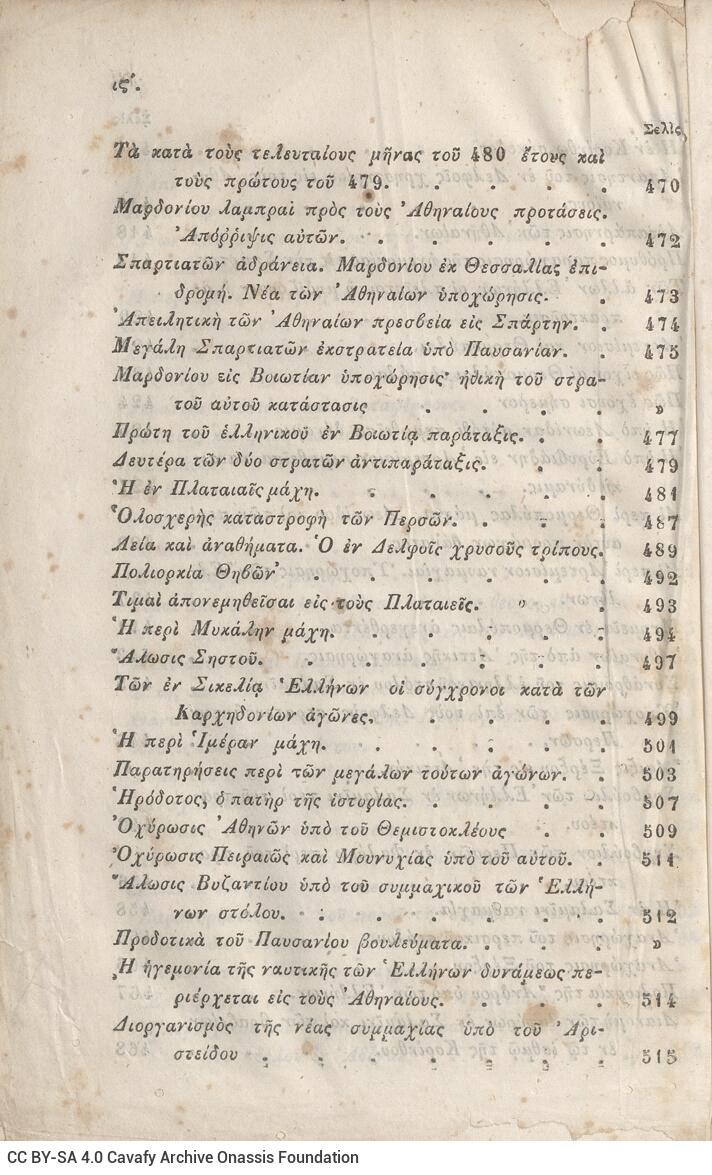 ις΄.
Σελὶς
Τὰ κατὰ τοὺς τελευταίους μῆνας τοῦ 480 ἔτους καὶ
τοὺς πρώτους τοῦ 479. . . . . 470
Μαρδονίου λαμπραὶ πρὸς τοὺς Ἀθηναίους προτάσεις.
Ἀπόρριψις αὐτῶν. . . . . . 472
Σπαρτιατῶν ἀδράνεια. Μαρδονίου ἐκ Θεσσαλίας ἐπι-
δρομή. Νέα τῶν Ἀθηναίων ὑποχώρησις. . 473
Ἀπειλητικὴ τῶν Ἀθηναίων πρεσβεία εἰς Σπάρτην. . 474
Μεγάλη Σπαρτιατῶν ἐκστρατεία ὑπὸ Παυσανίαν. . 475
Μαρδονίου εἰς Βοιωτίαν ὑποχώρησις· ἠθικὴ τοῦ στρα-
τοῦ αὐτοῦ κατάστασις . . . . »
Πρώτη τοῦ ἑλληνικοῦ ἐν Βοιωτίᾳ παράταξις. . . 477
Δευτέρα τῶν δύο στρατῶν ἀντιπαράταξις. . . 479
Ἡ ἐν Πλαταιαῖς μάχη. . . . . . 481
Ὁλοσχερὴς καταστροφὴ τῶν Περσῶν. . . . 487
Λεία καὶ ἀναθήματα. Ὁ ἐν Δελφοῖς χρυσοῦς τρίπους. 489
Πολιορκία Θηβῶν . . . . . . 492
Τιμαὶ ἀπονεμηθεῖσαι εἰς τοὺς Πλαταιεῖς. . . . 493
Ἡ περὶ Μυκάλην μάχη. . . . . . 494
Ἅλωσις Σηστοῦ. . . . . . . 497
Τῶν ἐν Σικελίᾳ Ἑλλήνων οἱ σύγχρονοι κατὰ τῶν
Καρχηδονίων ἀγῶνες. . . . . 499
Ἡ περὶ Ἱμέραν μάχη. . . . . . 501
Παρατηρήσεις περὶ τῶν μεγάλων τούτων ἀγώνων. . 503
Ἡρόδοτος, ὁ πατὴρ τῆς ἱστορίας. . . . . 507
Ὀχύρωσις Ἀθηνῶν ὑπὸ τοῦ Θεμιστοκλέους . . 509
Ὀχύρωσις Πειραιῶς καὶ Μουνυχίας ὑπὸ τοῦ αὐτοῦ. . 511
Ἅλωσις Βυζαντίου ὑπὸ τοῦ συμμαχικοῦ τῶν Ἑλλή-
νων στόλου. . . . . . . 512
Προδοτικὰ τοῦ Παυσανίου βουλεύματα. . . . »
Ἡ ἡγεμονία τῆς ναυτικῆς τῶν Ἑλλήνων δυνάμεως πε-
ριέρχεται εἰς τοὺς Ἀθηναίους. . . . 514
Διοργανισμὸς τῆς νέας συμμαχίας ὑπὸ τοῦ Ἀρι-
στείδου . . . . . . . 515
CC BY-SA 4.0 Cavafy Archive Onassis Foundation